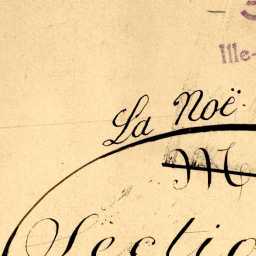 Ille-
La Noë
M
Sectio